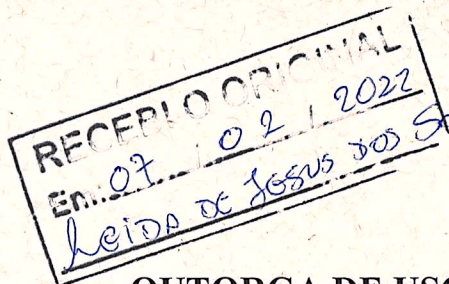 RECEBI O ORIGINAL
Em: 07 / 02 / 2022
Leida de Jesus dos
OUTORGA DE USO